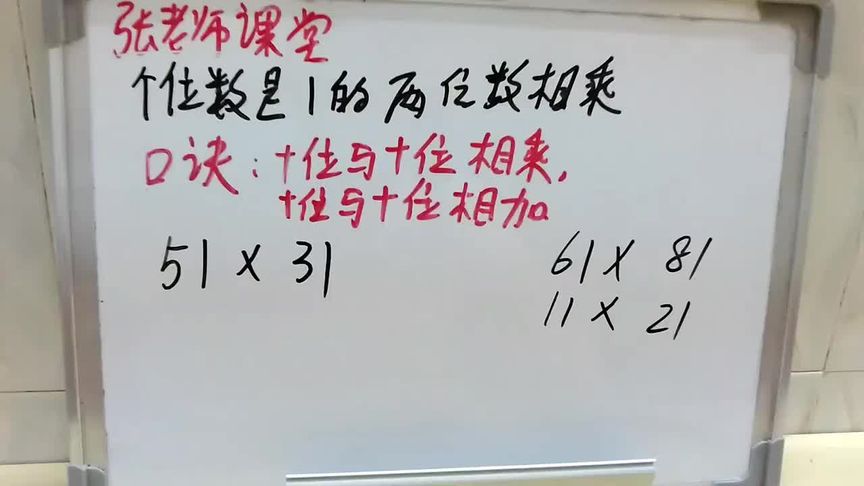 张老师课堂
个位数是1的两位数相乘
口诀:十位与十位相乘,
十位与十位相加
51×31
61×81
11×21